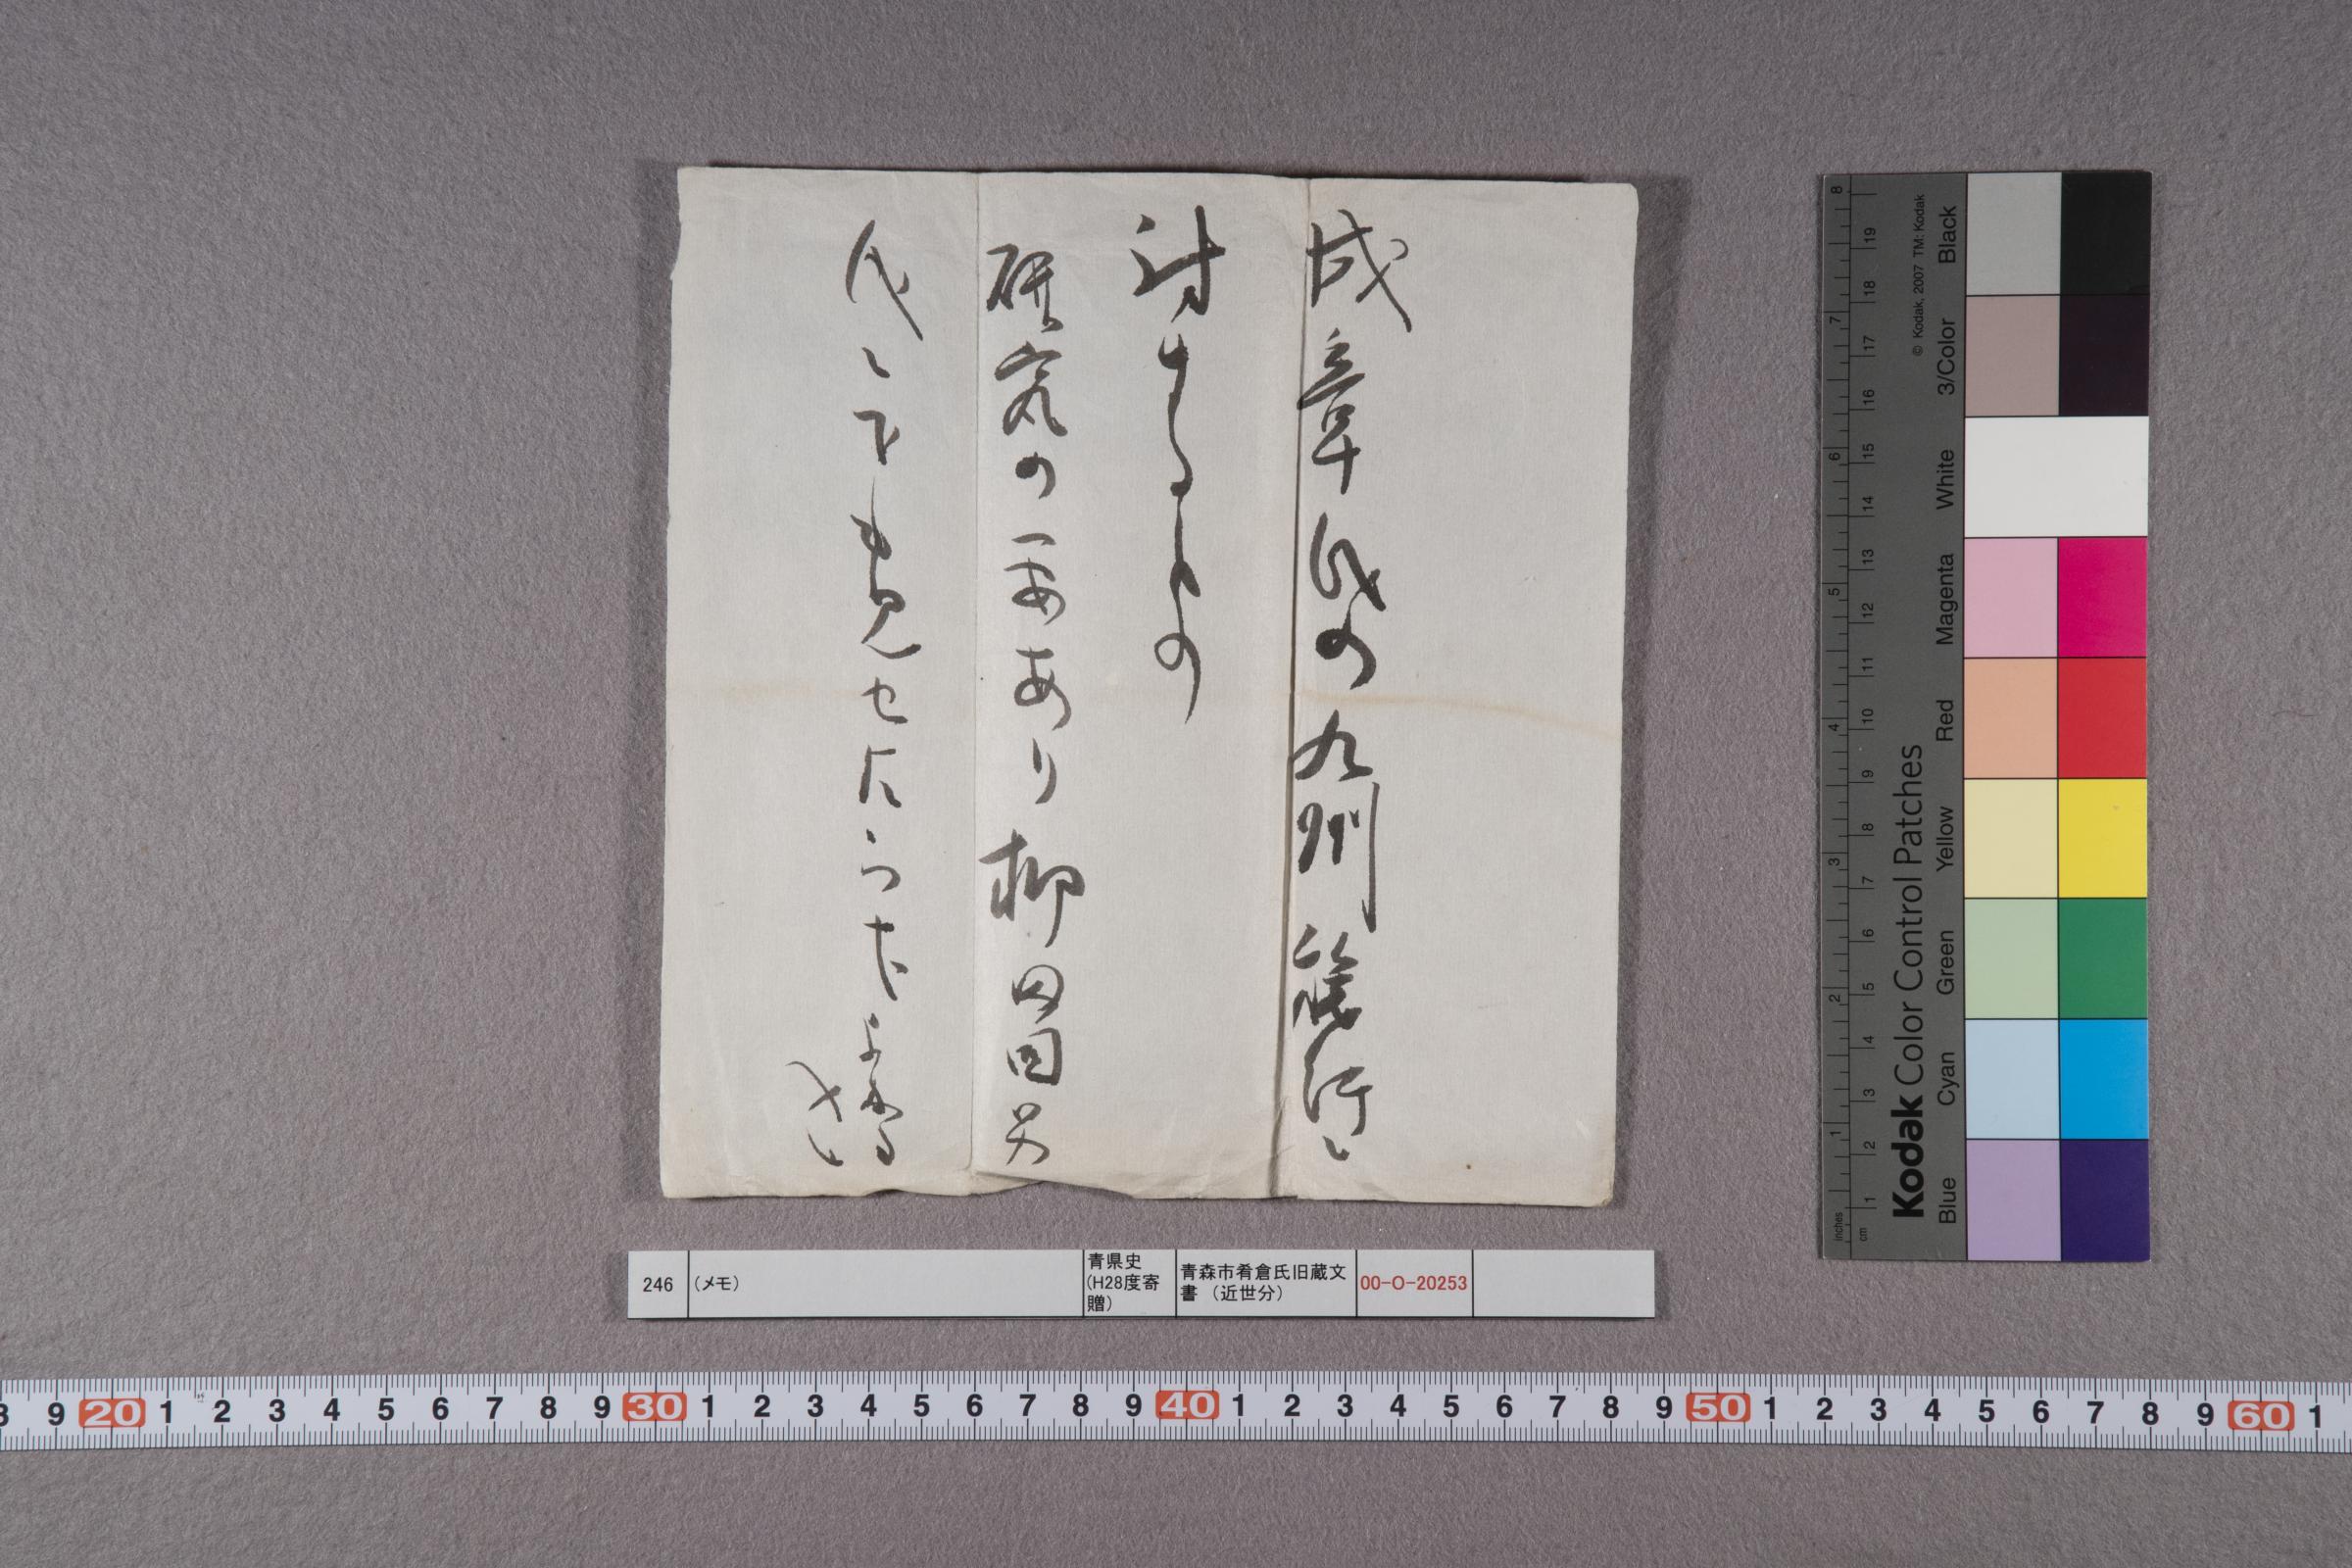 成章氏の九州旅行に
対するもの
研究の要あり柳田国男
氏にでも見せたらば、よかる
べし
246
(メモ)
青県史
(H28度寄
贈)
青森市肴倉氏旧蔵文
書 (近世分)
00-O-20253
Kodak Color Control Patches
© Kodak, 2007 TM: Kodak
Blue Cyan Green Yellow Red Magenta White 3/Color Black
inches 1 2 3 4 5 6 7 8
cm 1 2 3 4 5 6 7 8 9 10 11 12 13 14 15 16 17 18 19
8 9 20 1 2 3 4 5 6 7 8 9 30 1 2 3 4 5 6 7 8 9 40 1 2 3 4 5 6 7 8 9 50 1 2 3 4 5 6 7 8 9 60 1